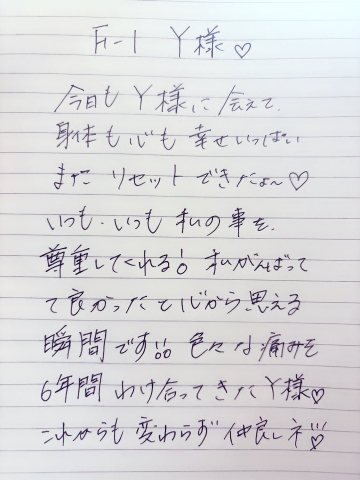 Fr-1 Y様♡
今日も Y様に 会えて、
身体も心も 幸せいっぱい
また リセット できたよ〜♡
いつも、いつも 私の事を、
尊重してくれる! 私がんばって
て良かったと心から思える
瞬間です!! 色々な痛みを
6年間 わけ合ってきたY様♡
これからも 変わらず 仲良しネ♡